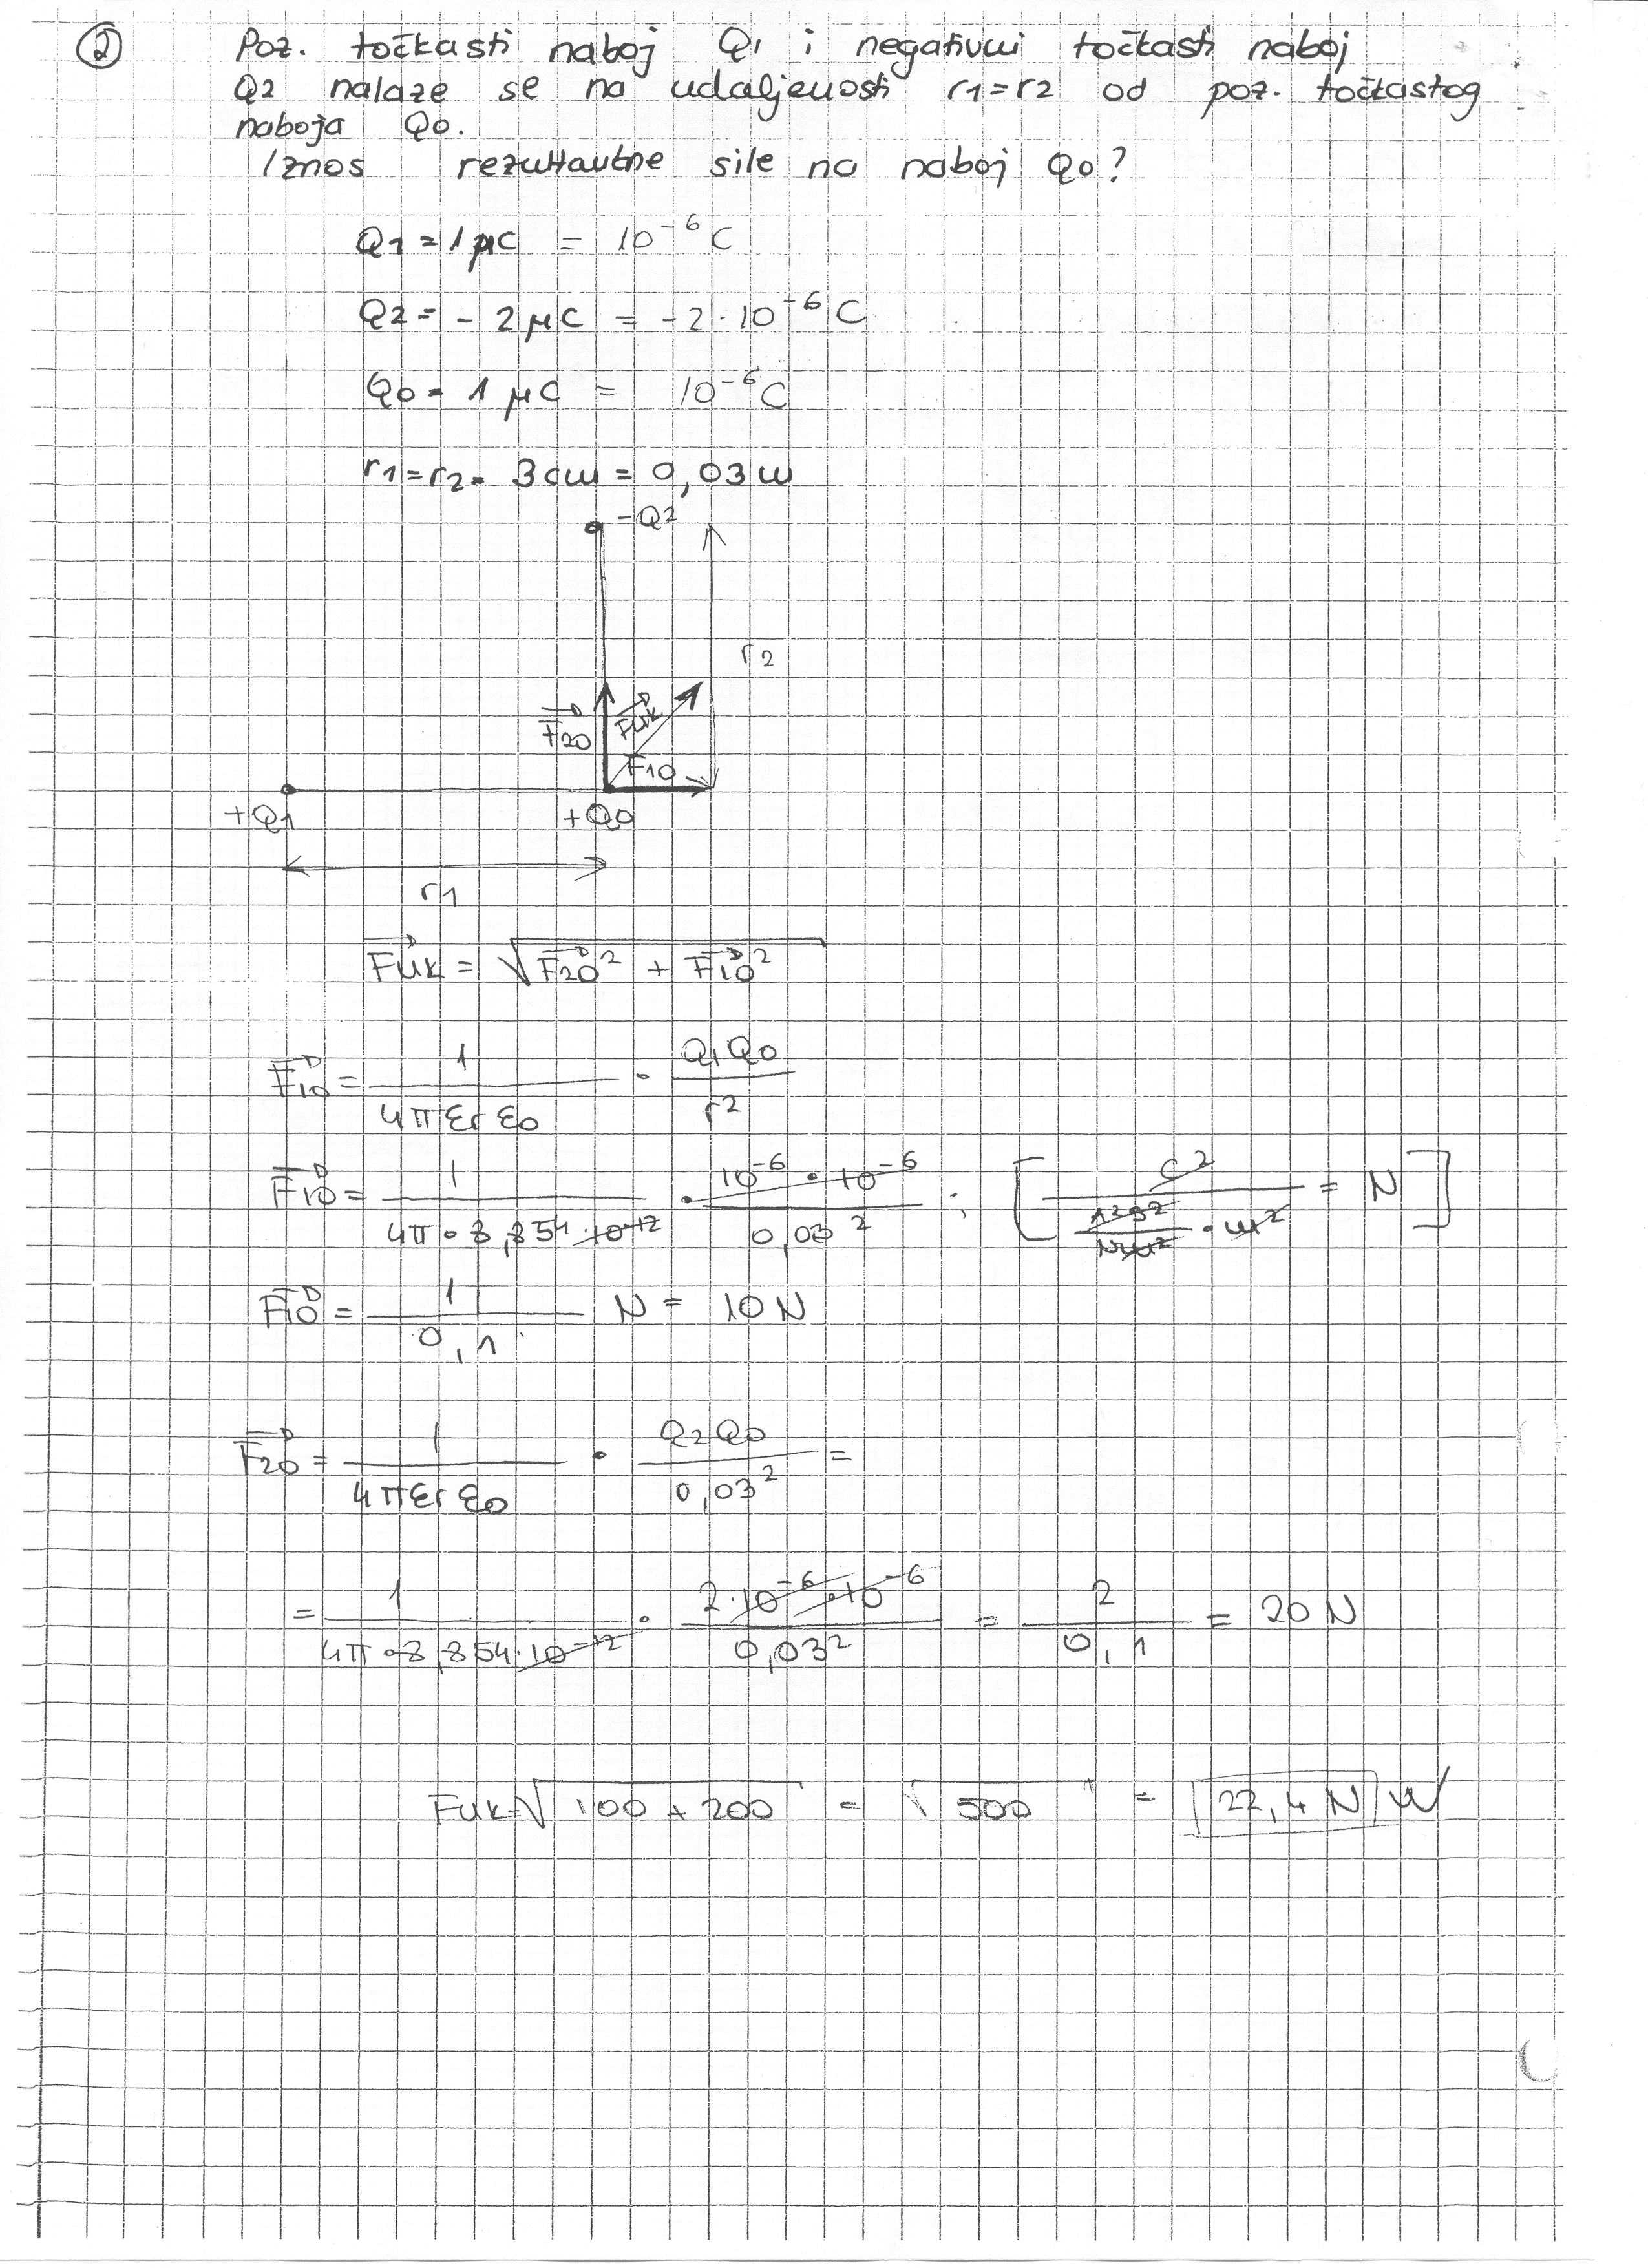 ② Poz. točkasti naboj Q1 i negativni točkasti naboj
Q2 nalaze se na udaljenosti r1=r2 od poz. točkastog
naboja Q0.
Iznos rezultantne sile na naboj Q0?
Q1 = 1 μC = 10⁻⁶ C
Q2 = - 2 μC = -2 · 10⁻⁶ C
Q0 = 1 μC = 10⁻⁶ C
r1=r2= 3cm = 0,03 m
-Q2
r2
F20 Fuk
F10
+Q1 +Q0
r1
Fuk = √(F20² + F10²)
F10 = 1/(4π εr ε0) · Q1 Q0/r²
F10 = 1/(4π · 8,854 · 10⁻¹²) · 10⁻⁶ · 10⁻⁶/0,03² ; [C²/(A²s²/Nm² · m²) = N]
F10 = 1/0,1 N = 10 N
F20 = 1/(4π εr ε0) · Q2 Q0/0,03² =
= 1/(4π · 8,854 · 10⁻¹²) · 2 · 10⁻⁶ · 10⁻⁶/0,03² = 2/0,1 = 20 N
Fuk = √(100 + 200) = √500 = 22,4 N